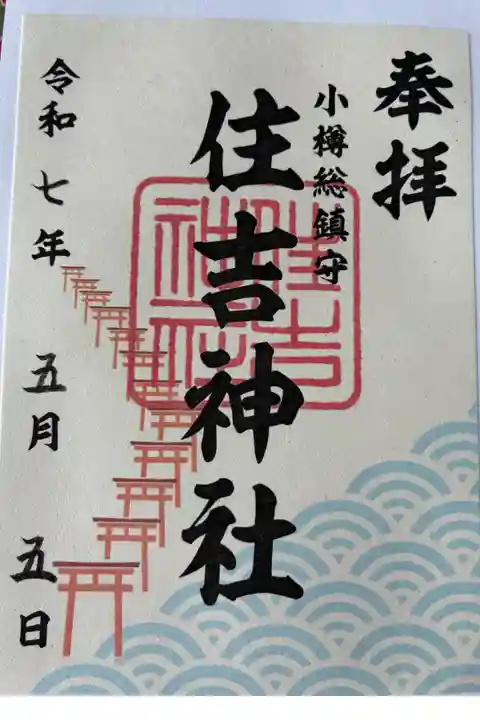 奉拝
小樽総鎮守
住吉神社
住吉
神社
令和七年 五月 五日